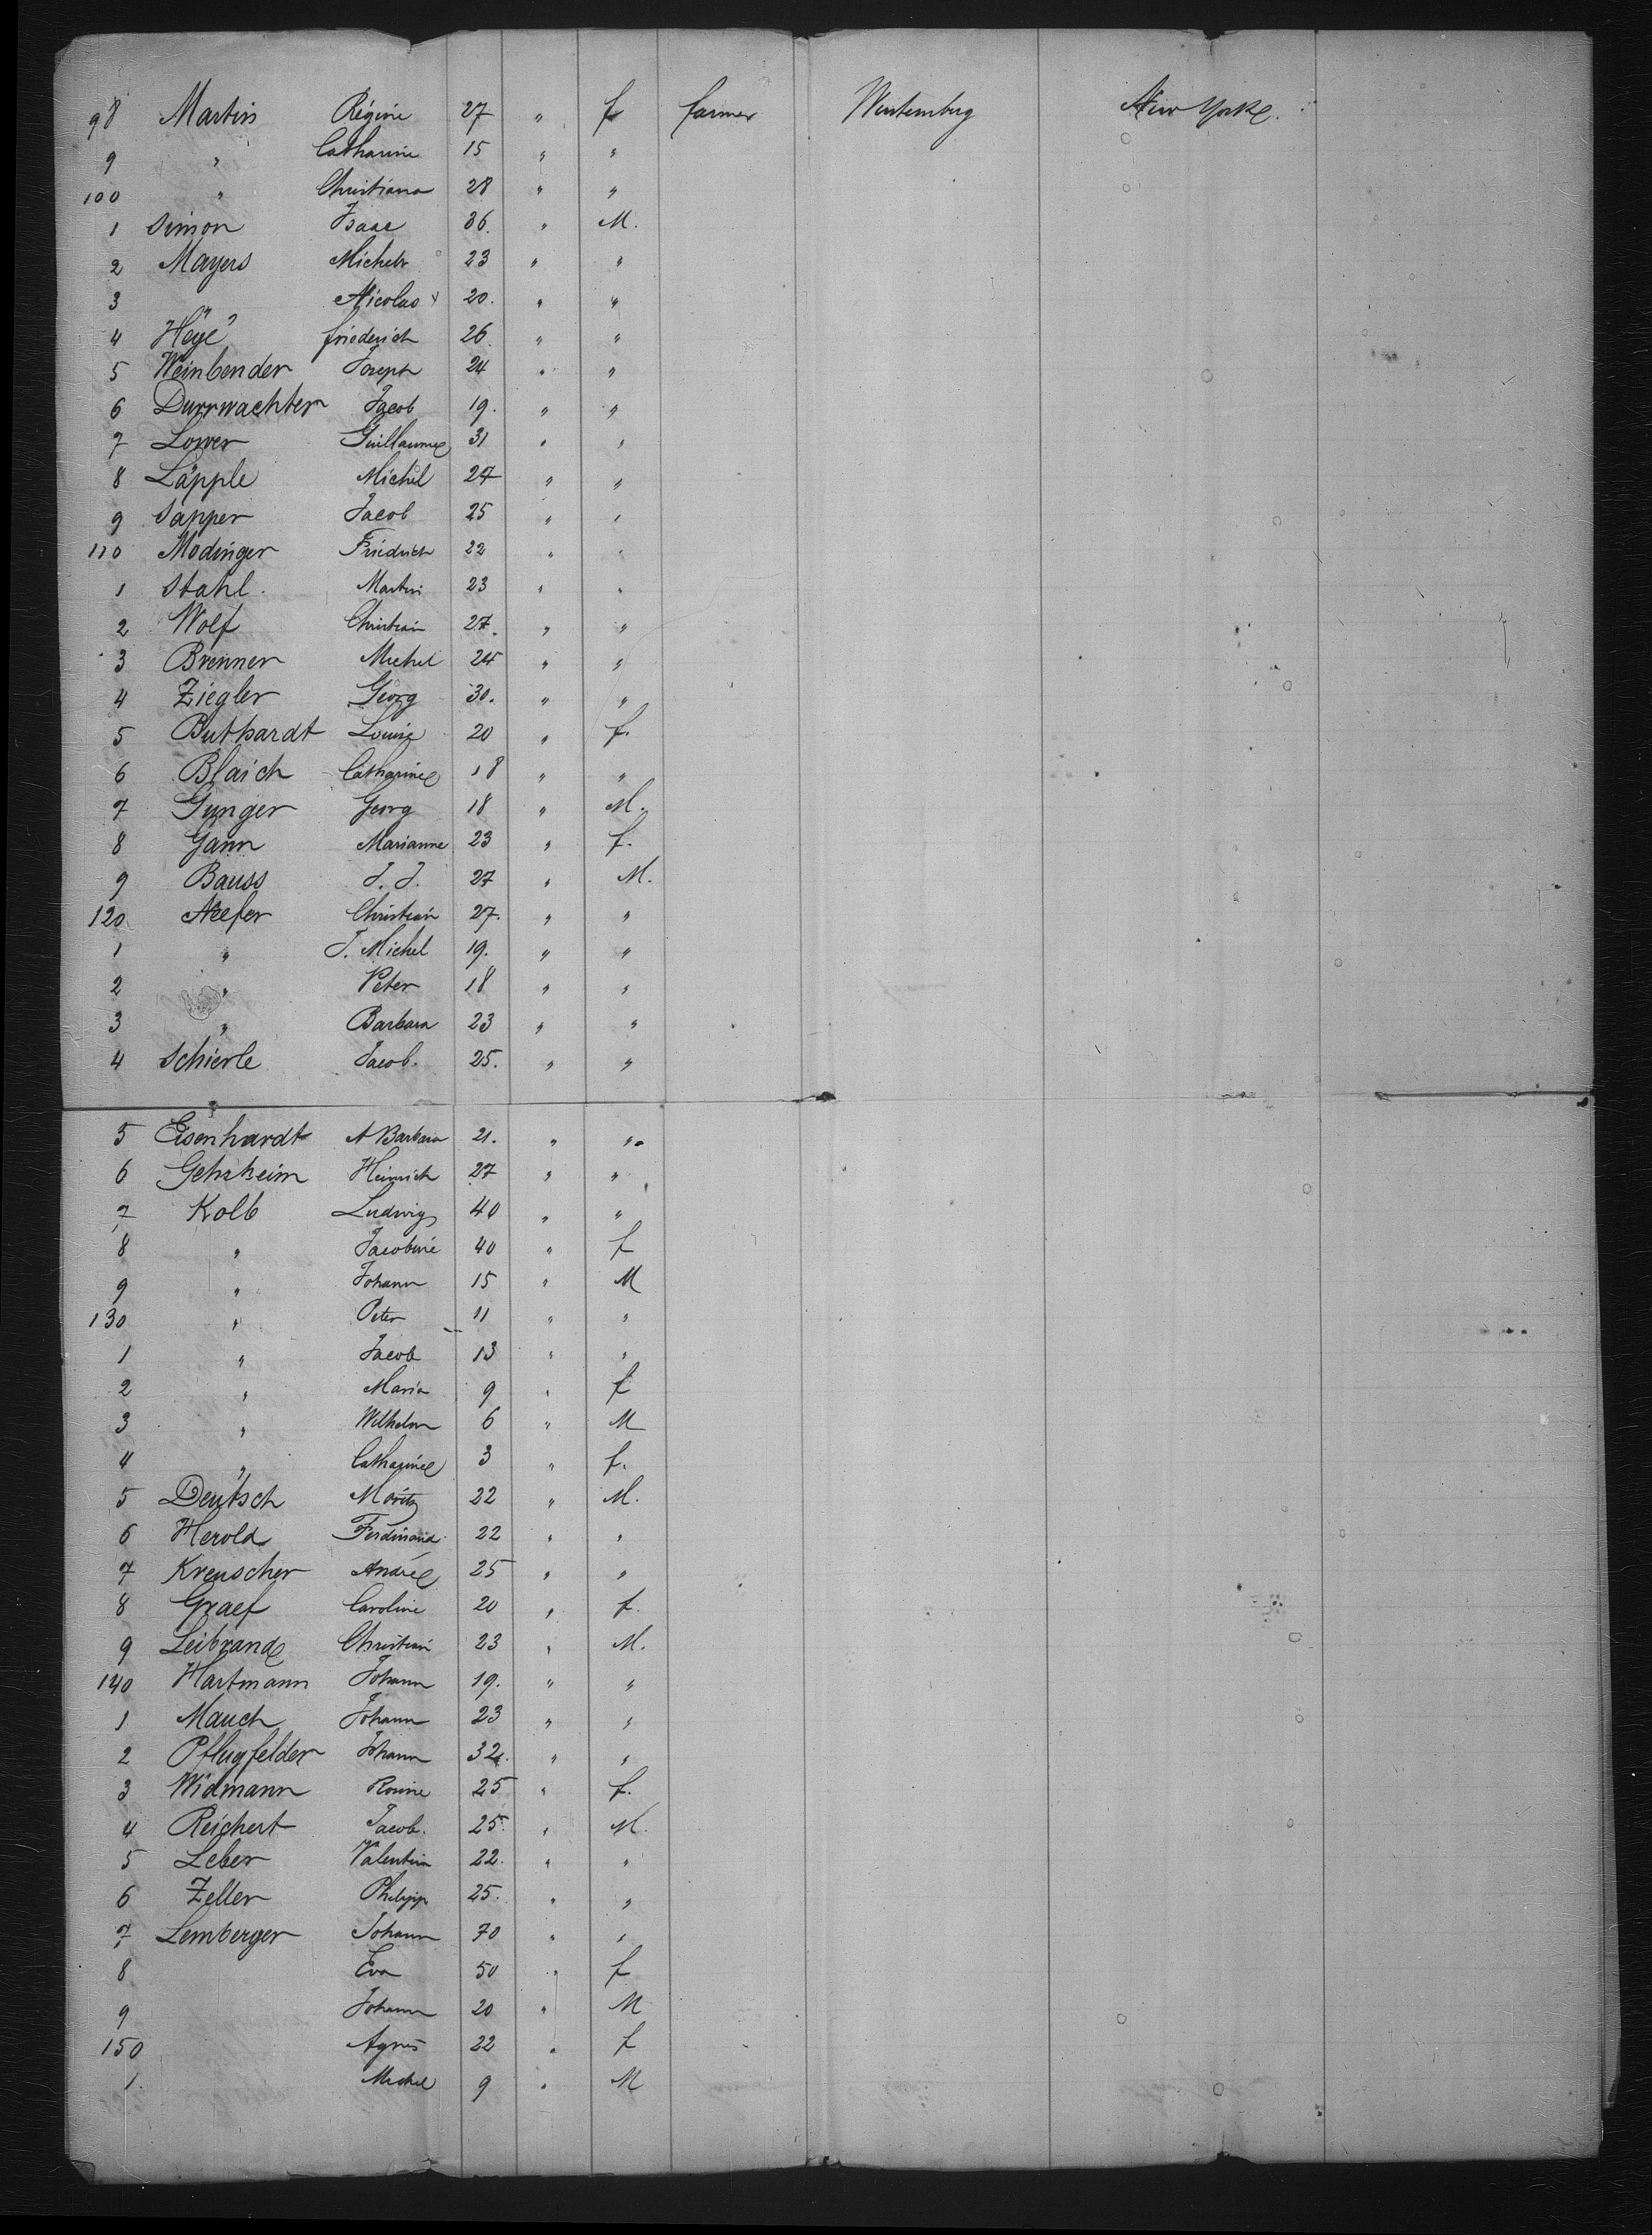 98 Martin Régine 27 " f farmer Wurtemberg New York.
9 " Catharine 15 " "
100 " Christiana 28 " "
1 Simon Isaac 36. " M.
2 Mayers Michel 23 " "
3 " Nicolas 20. " "
4 Heyé friederich 26. " "
5 Weinbender Joseph 24 " "
6 Durrwachter Jacob 19. " "
7 Lower Guillaume 31 " "
8 Läpple Michel 27 " "
9 Sapper Jacob 25 " "
110 Modinger Friedrich 22 " "
1 Stahl. Martin 23 " "
2 Wolf Christian 27. " "
3 Brenner Michel 24 " "
4 Ziegler Georg 30. " "
5 Buthardt Louise 20 " f.
6 Blaich Catharine 18 " "
7 Gunger Georg 18 " M.
8 Gann Marianne 23 " f.
9 Bauss J. J. 27 " M.
120 Neefer Christian 27. " "
1 " J. Michel 19. " "
2 " Peter 18 " "
3 " Barbara 23 " "
4 Schierle Jacob. 25. " "
5 Eisenhardt A Barbara 21. " "
6 Gehrheim Heinrich 27 " "
7 Kolb Ludwig 40 " "
8 " Jacobine 40 " f
9 " Johann 15 " M
130 " Peter 11 " "
1 " Jacob 13 " "
2 " Maria 9 " f
3 " Wilhelm 6 " M
4 " Catharine 3 " f.
5 Deutsch Moritz 22 " M.
6 Herold Ferdinand 22 " "
7 Kreuscher André 25 " "
8 Graef Caroline 20 " f.
9 Leibrand Christian 23 " M.
140 Hartmann Johann 19. " "
1 Mauch Johann 23 " "
2 Pflugfelder Johann 32. " "
3 Widmann Rosine 25 " f.
4 Reichert Jacob. 25. " M.
5 Leber Valentin 22. " "
6 Zeller Philipp 25. " "
7 Lemberger Johann 70 " "
8 Eva 50 " f
9 Johann 20 " M
150 Agnes 22 " f
1. Michel 9 " M